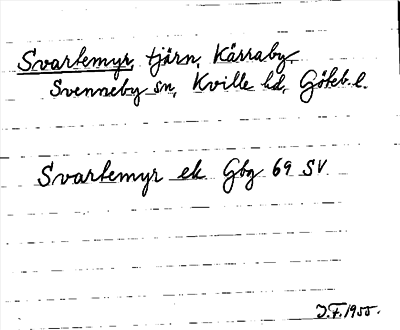 Svartemyr, tjärn, Kärraby,
Svenneby sn, Kville hd, Göteb. l.
Svartemyr ek Gbg 69 SV
J.F. 1955.